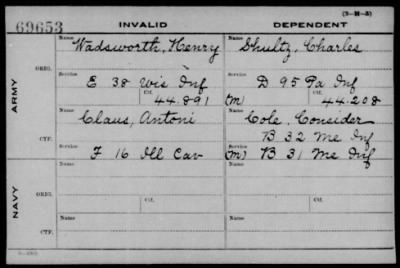 (3-M-3)
69653
INVALID
DEPENDENT
ARMY
ORIG.
Name
Wadsworth, Henry
Service
E 38 Wis Inf
Ctf.
44.891
Name
Shultz, Charles
Service
D 95 Pa Inf
(M)
Ctf.
44.208
CTF.
Name
Claus, Antoni
Service
F 16 Ill Cav
Name
Cole, Consider
B 32 Me Inf
Service
(M) B 31 Me Inf
NAVY
ORIG.
Name
Ctf.
Name
Ctf.
CTF.
Name
Name